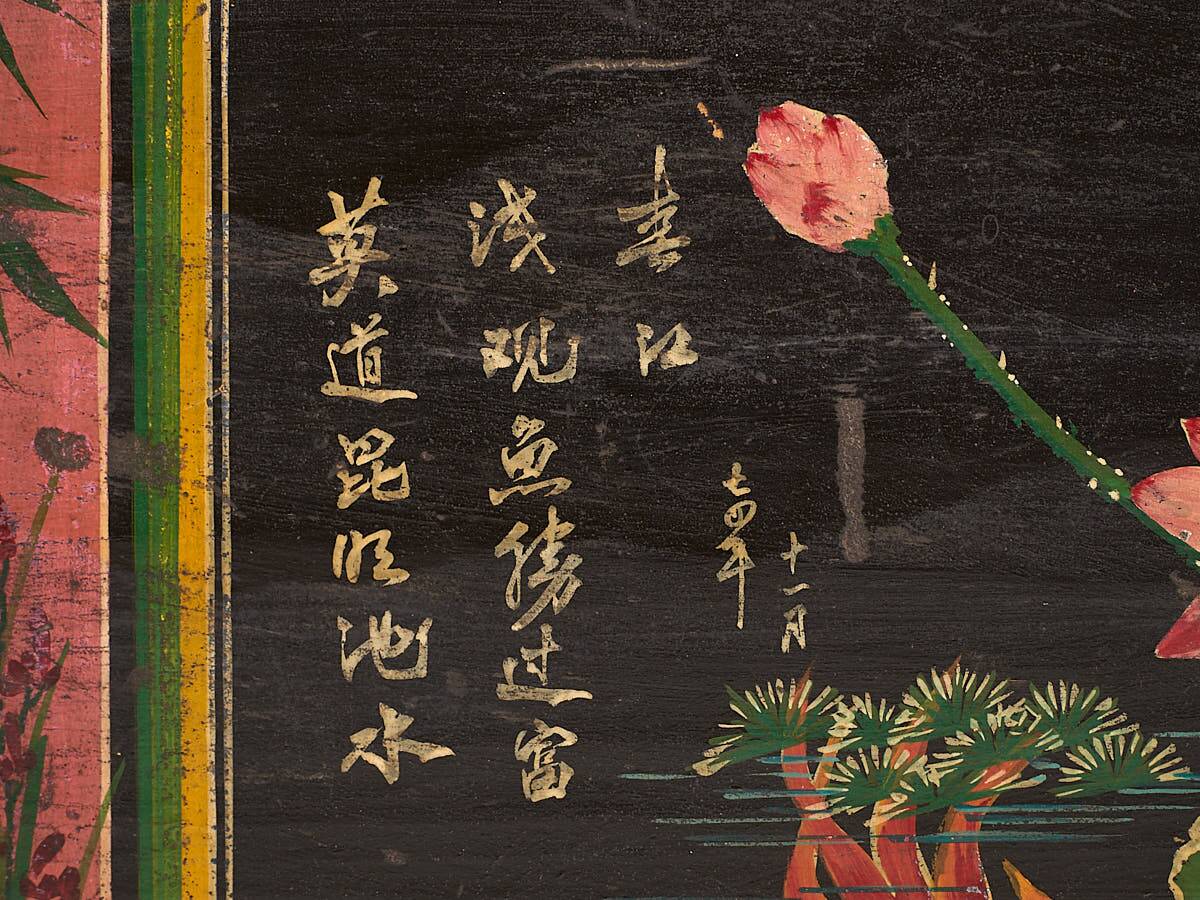 莫道昆明池水
浅观鱼勝过富
春江
七四年
十一月